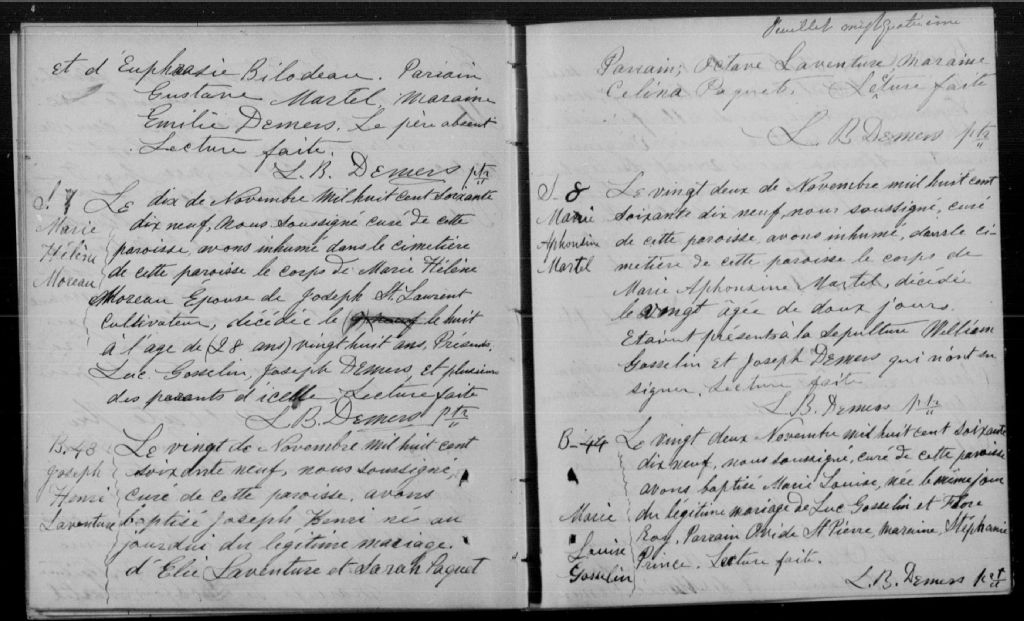 et d'Euphrasie Bilodeau. Parrain
Gustave Martel, maraine
Emilie Demers. Le père absent
Lecture faite.
L. B. Demers ptr
S. 7
Marie
Hélène
Moreau
Le dix de Novembre mil huit cent soixante
dix neuf, nous soussigné curé de cette
paroisse, avons inhumé dans le cimetière
de cette paroisse le corps de Marie Hélène
Moreau Epouse de Joseph St Laurent
Cultivateur, décédée le le huit
à l'age de (28 ans) vingt huit ans. Présents,
Luc Gosselin, Joseph Demers, et plusieurs
des parents d'icelle, Lecture faite
L. B. Demers ptr
B-43
Joseph
Henri
Laventure
Le vingt de Novembre mil huit cent
soixante neuf, nous soussigné,
curé de cette paroisse, avons
baptisé Joseph Henri né au
jourdui du legitime mariage
d'Elie Laventure et Sarah Paquet
Feuillet
Parrain, Octave Laventure, maraine
Celina Paquet. Lecture faite
L. B. Demers ptr
S-8
Marie
Alphonsine
Martel
Le vingt deux de Novembre mil huit cent
soixante dix neuf, nous soussigné, curé
de cette paroisse, avons inhumé, dans le ci-
metière de cette paroisse le corps de
Marie Alphonsine Martel, décédée
le vingt âgée de doux jours
Etaient présents à la sepulture William
Gosselin et Joseph Demers qui n'ont su
signer. Lecture faite
L. B. Demers ptr
B-44
Marie
Louise
Gosselin
Le vingt deux Novembre mil huit cent soixante
dix neuf, nous soussigné, curé de cette paroisse
avons baptisé Marie Louise, née le même jour
du légitime mariage de Luc Gosselin et Flore
Roy. Parrain Ovide St Pierre, maraine, Stéphanie
Prince. Lecture faite.
L. B. Demers ptr